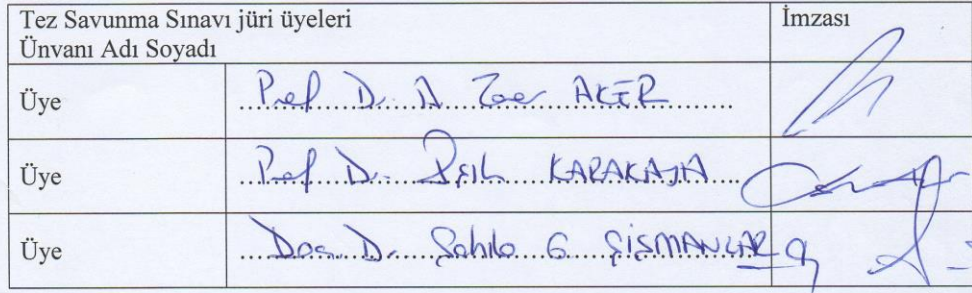 Tez Savunma Sınavı jüri üyeleri
Ünvanı Adı Soyadı
İmzası
Üye Prof Dr. A AKER
Üye Prof Dr. KARAKAYA
Üye Doç. Dr. G ŞİŞMANLAR